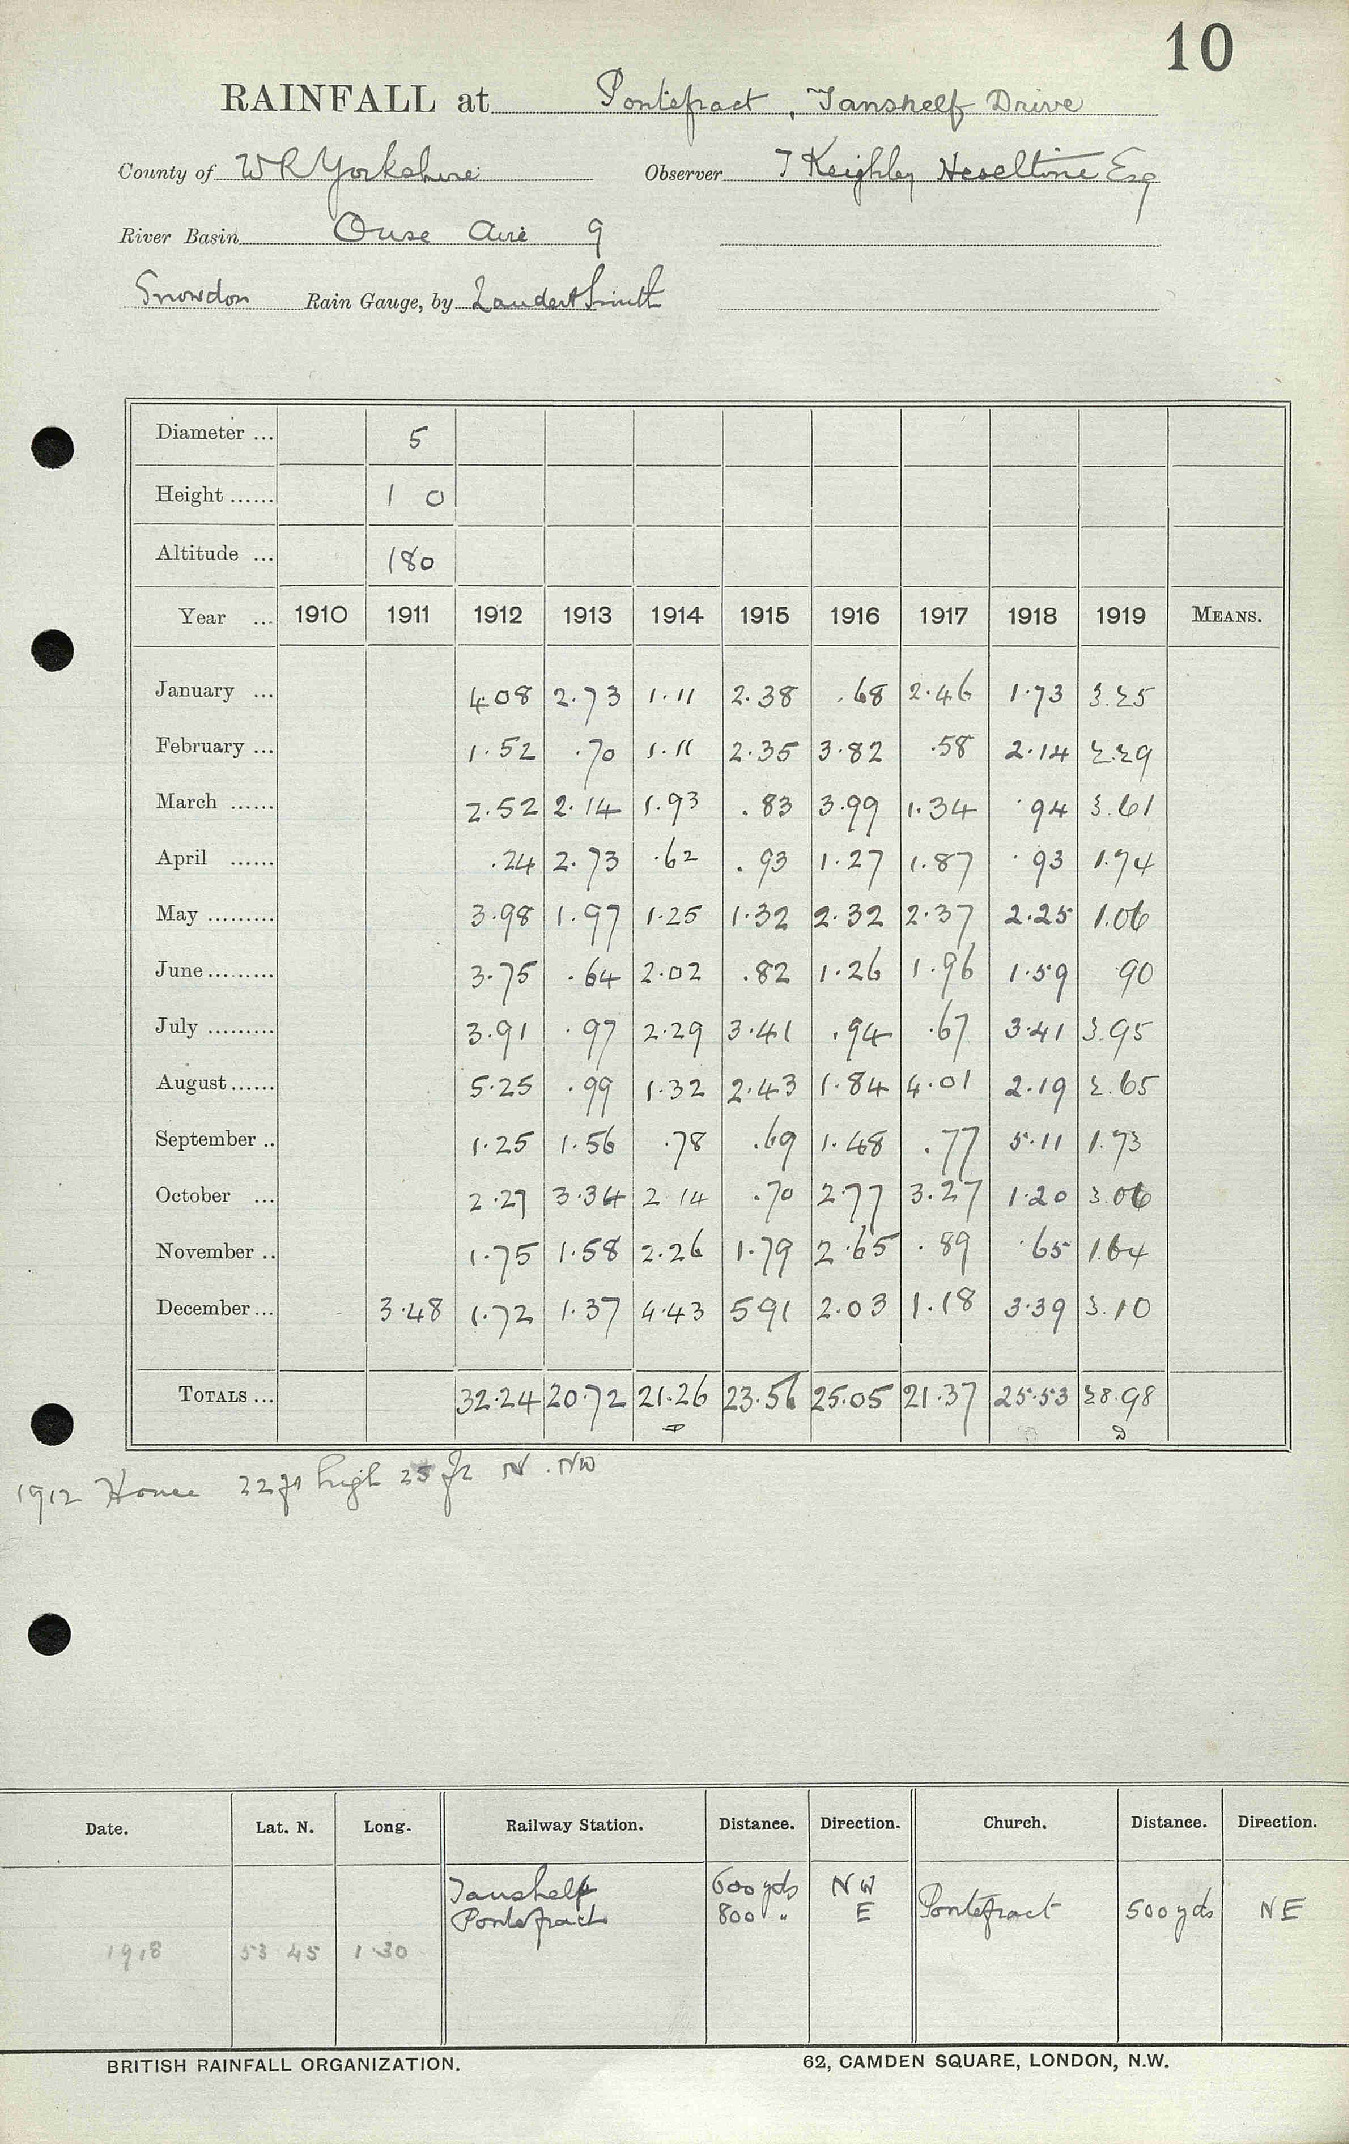 10
RAINFALL at Pontefract, Tanshelf Drive
County of W R Yorkshire Observer T Keighley Heseltine Esq
River Basin Ouse Aire 9
Snowdon Rain Gauge, by
Diameter ... 5
Height ...... 1 0
Altitude ... 180
Year ... 1910 1911 1912 1913 1914 1915 1916 1917 1918 1919 MEANS.
January ... 4.08 2.73 1.11 2.38 .68 2.46 1.73 3.25
February ... 1.52 .70 1.11 2.35 3.82 .58 2.14 2.29
March ...... 2.52 2.14 1.93 .83 3.99 1.34 .94 3.61
April ...... .24 2.73 .62 .93 1.27 1.87 .93 1.74
May ......... 3.98 1.97 1.25 1.32 2.32 2.37 2.25 1.06
June ......... 3.75 .64 2.02 .82 1.26 1.96 1.59 .90
July ......... 3.91 .97 2.29 3.41 .94 .67 3.41 3.95
August ...... 5.25 .99 1.32 2.43 1.84 4.01 2.19 2.65
September .. 1.25 1.56 .78 .69 1.48 .77 5.11 1.73
October ... 2.27 3.34 2 14 .70 2.77 3.27 1.20 3.06
November .. 1.75 1.58 2.26 1.79 2.65 .89 .65 1.64
December ... 3.48 1.72 1.37 4.43 5 91 2.03 1.18 3.39 3.10
TOTALS ... 32.24 20.72 21.26 23.56 25.05 21.37 25.53 28.98
1912 House 22 ft high 25 ft N. NW
Date. Lat. N. Long. Railway Station. Distance. Direction. Church. Distance. Direction.
Tanshelf 600 yds NW
Pontefract 800 " E Pontefract 500 yds NE
1918 53 45 1.30
BRITISH RAINFALL ORGANIZATION. 62, CAMDEN SQUARE, LONDON, N.W.